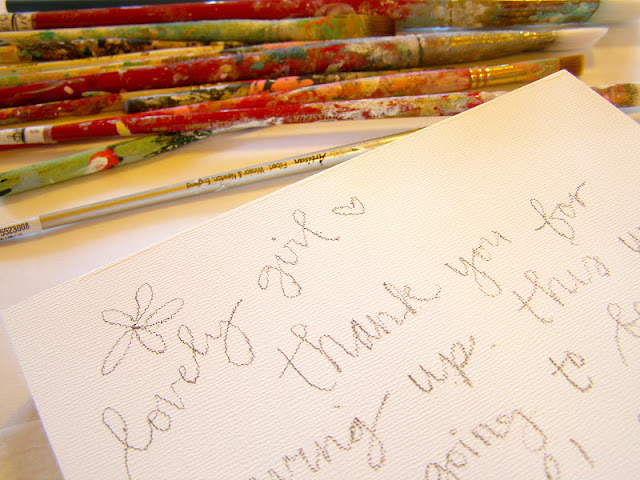 Artisan Filbert Winsor & Newton, England
5523008
lovely girl
thank you for
up. this
going to